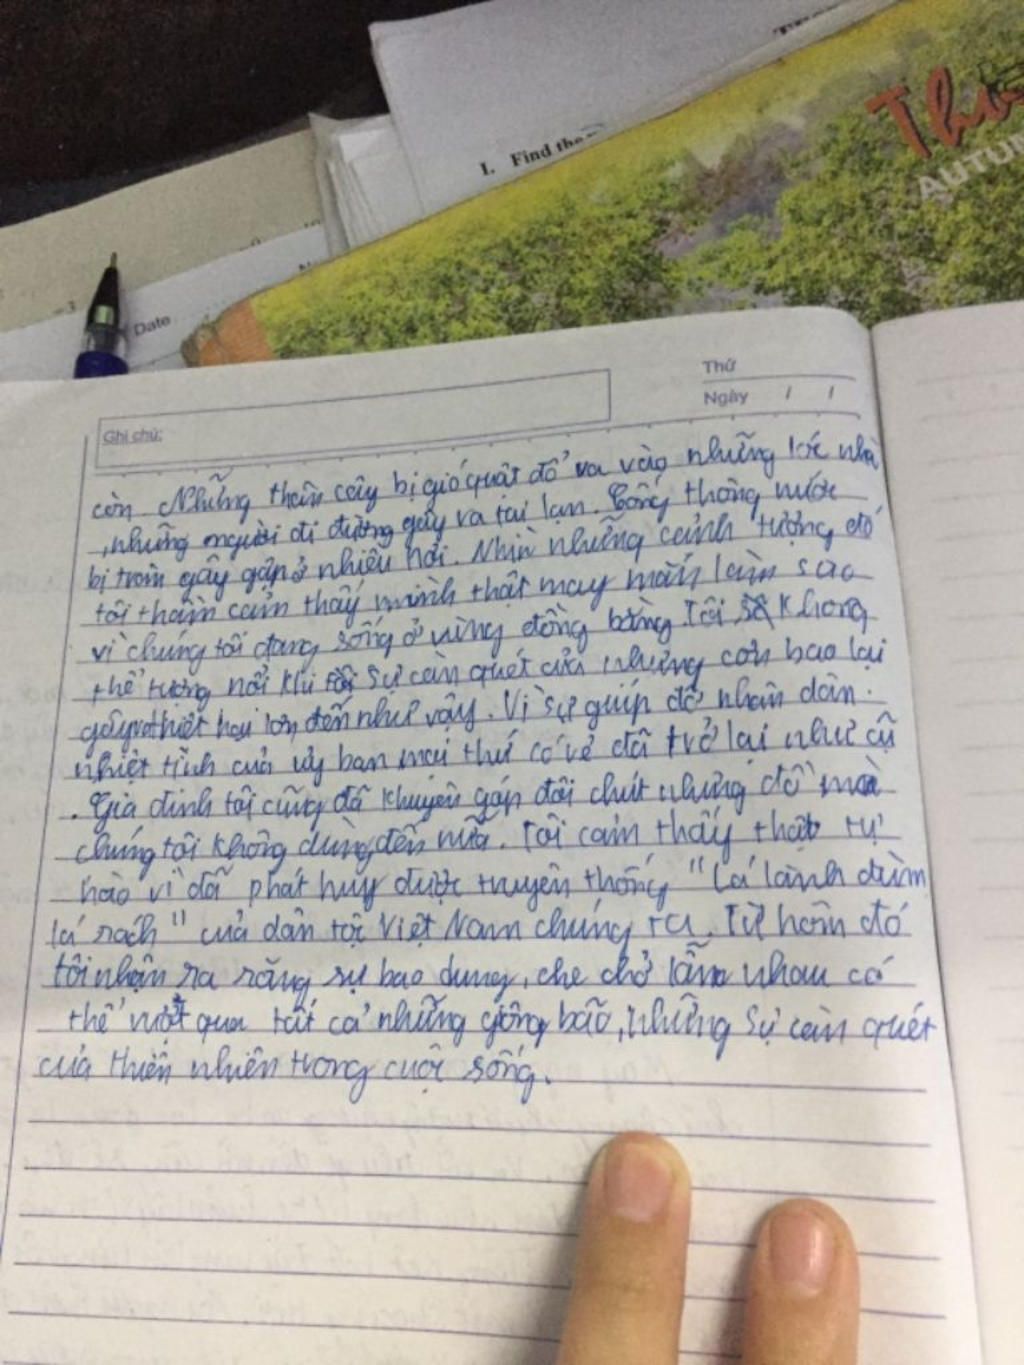 I. Find the
Thi
AUTUM
Date
Thứ
Ngày / /
Ghi chú:
còn. Những thân cây bị gió quật đổ va vào những nhà
, những người đi đường gây ra tai lạn. Cống thông nước
bị tràn gây gập ở nhiều nơi. Nhìn những cảnh tượng đó
tôi thầm cảm thấy mình thật may mắn làm sao
vì chúng tôi đang sống ở vùng đồng bằng. Tôi không
thể tượng nổi khi sự càn quét của những cơn bao lại
gây thiệt hại lớn đến như vậy. Vì sự giúp đỡ nhân dân
nhiệt tình của ủy ban mọi thứ có vẻ đã trở lại như cũ
. Gia đình tôi cũng đã khuyên góp đôi chút những đồ mà
chúng tôi không dùng đến nữa. Tôi cảm thấy thật tự
hào vì đã phát huy được truyền thống "Lá lành đùm
lá rách" của dân tộc Việt Nam chúng ta. Từ hôm đó
tôi nhận ra rằng sự bao dung, che chở lẫn nhau có
thể vượt qua tất cả những giông bão, những sự càn quét
của thiên nhiên trong cuộc sống.